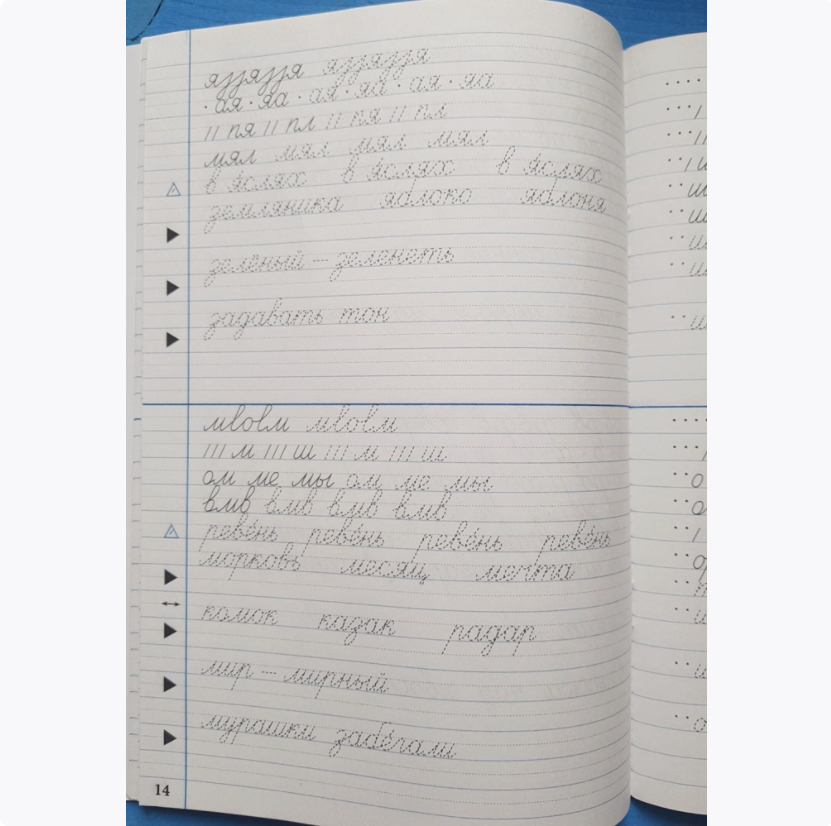 яззязя яззязя
· ая · яа · ая · яа · ая · яа
// пя // пл // пя // пл
мял мял мял мял
в я́слях в я́слях в я́слях
земляника яблоко яблоня
зелёный – зеленеть
задавать тон
мвовм мвовм
/// м /// ш /// м /// ш
ом ме мы ом ме мы
вмв вмв вмв вмв
реве́нь реве́нь реве́нь реве́нь
морковь месяц мечта
комок казак радар
мир – мирный
мурашки забе́гали
14